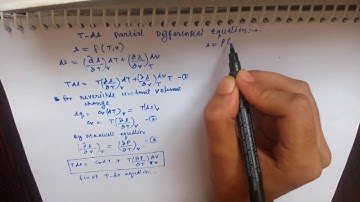 T-ds Partial Differential Equation:-
s = f(T,v)
ds = (∂s/∂T)_v dT + (∂s/∂v)_T dv
Tds = T(∂s/∂T)_v dT + T(∂s/∂v)_T dv -①
for reversible constant volume
change
dq = cv(dT)v = T(ds)v
cv = T(∂s/∂T)_v -②
By Maxwell equation
(∂s/∂v)_T = (∂P/∂T)_v -③
Tds = cvdT + T(∂P/∂T)_v dv
first T-ds equation
s = f(